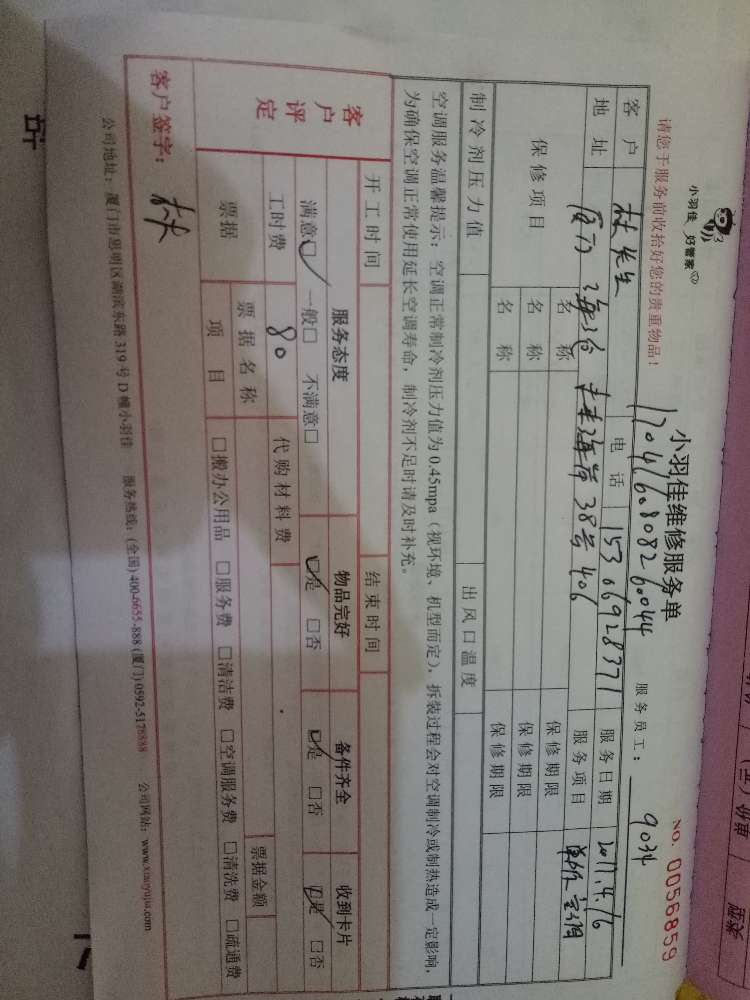 小羽佳 好管家
请您于服务前收拾好您的贵重物品!
小羽佳维修服务单
NO. 0056859
服务员工: 9034
客户 林先生 电话 15306928371 服务日期 2017.4.16
地址 服务项目
保修项目 名称 保修期限
名称 保修期限
名称 保修期限
制冷剂压力值 出风口温度
空调服务温馨提示:空调正常制冷剂压力值为0.45mpa(视环境、机型而定),拆装过程会对空调制冷或制热造成一定影响,
为确保空调正常使用延长空调寿命,制冷剂不足时请及时补充。
开工时间 结束时间
客户评定 服务态度 物品完好 备件齐全 收到卡片
满意☑ 一般□ 不满意□ ☑是 □否 ☑是 □否 ☑是 □否
工时费 80 代购材料费
票据 票据名称 票据金额
项目 □搬办公用品 □服务费 □清洁费 □空调服务费 □清洗费 □疏通费
客户签字: 林
公司地址:厦门市思明区湖滨东路319号D幢小羽佳 服务热线:(全国)400-6655-888 (厦门)0592-5178888 公司网站:www.xiaoyujia.com